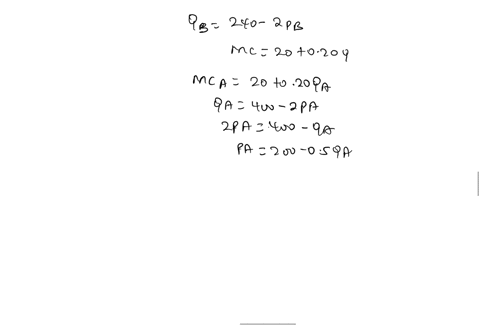 qB = 240 - 2PB
MC = 20 + 0.20q
MCA = 20 to .20qA
qA = 400 - 2PA
2PA = 400 - qA
PA = 200 - 0.5qA